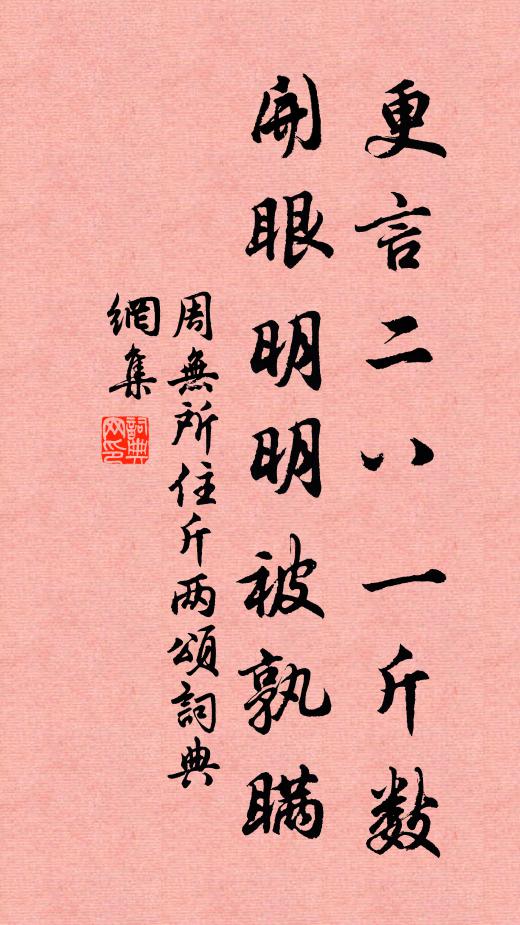 更言二八一斤数
開眼明明被孰瞞
周無所住斤两頌詞典
網集
詞典
网印